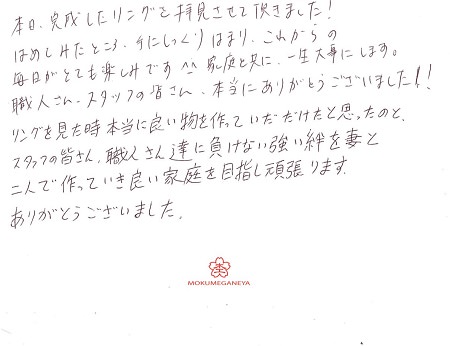 本日、完成したリングを拝見させて頂きました!
はめてみたところ、手にしっくりはまり、これからの
毎日がとても楽しみです^^ 家庭と共に、一生大事にします。
職人さん、スタッフの皆さん、本当にありがとうございました!!
リングを見た時本当に良い物を作っていただけたと思ったのと、
スタッフの皆さん、職人さん達に負けない強い絆を妻と
二人で作っていき良い家庭を目指し頑張ります。
ありがとうございました。
MOKUMEGANEYA